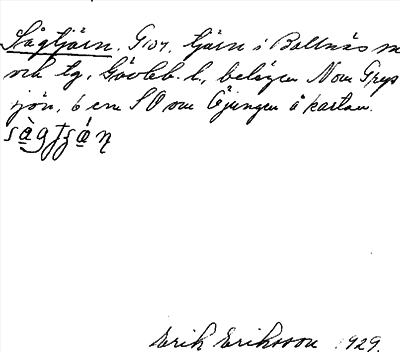 Sågtjärn. G107. tjärn i Bollnäs sn
och tg, Gävleb. l., belägen Nom Grys
sjön, 6 cm SO om Öjungen å kartan.
Erik Eriksson 1929.